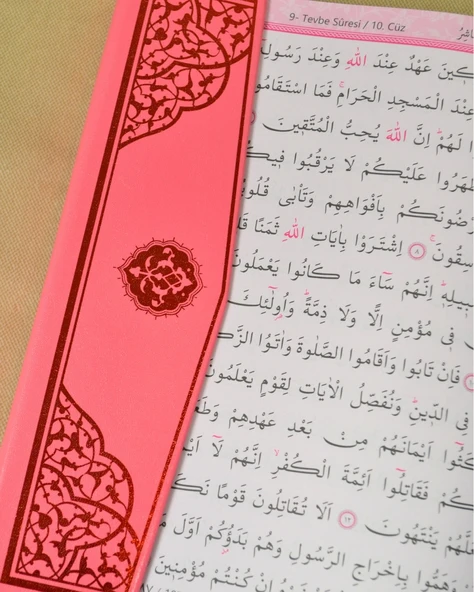 9- Tevbe Sûresi / 10. Cüz
عَهْدٌ عِنْدَ اللّٰهِ وَعِنْدَ رَسُولِ
عِنْدَ الْمَسْجِدِ الْحَرَامِۚ فَمَا اسْتَقَامُوا
لَهُمْ اِنَّ اللّٰهَ يُحِبُّ الْمُتَّقٖينَ
عَلَيْكُمْ لَا يَرْقُبُوا فٖيكُمْ
بِاَفْوَاهِهِمْ وَتَأْبٰى قُلُوبُ
٨ اِشْتَرَوْا بِاٰيَاتِ اللّٰهِ ثَمَنًا
اِنَّهُمْ سَٓاءَ مَا كَانُوا يَعْمَلُونَ
فٖى مُؤْمِنٍ اِلًّا وَلَا ذِمَّةًۜ وَاُولٰٓئِكَ
فَاِنْ تَابُوا وَاَقَامُوا الصَّلٰوةَ وَاٰتَوُا
فِى الدّٖينِۜ وَنُفَصِّلُ الْاٰيَاتِ لِقَوْمٍ يَعْلَمُونَ
اَيْمَانَهُمْ مِنْ بَعْدِ عَهْدِهِمْ
فَقَاتِلُٓوا اَئِمَّةَ الْكُفْرِۙ اِنَّهُمْ لَٓا
يَنْتَهُونَ ١٢ اَلَا تُقَاتِلُونَ قَوْمًا
وَهَمُّوا بِاِخْرَاجِ الرَّسُولِ وَهُمْ بَدَؤُ۫كُمْ اَوَّلَ
اِنْ كُنْتُمْ مُؤْمِنٖينَ